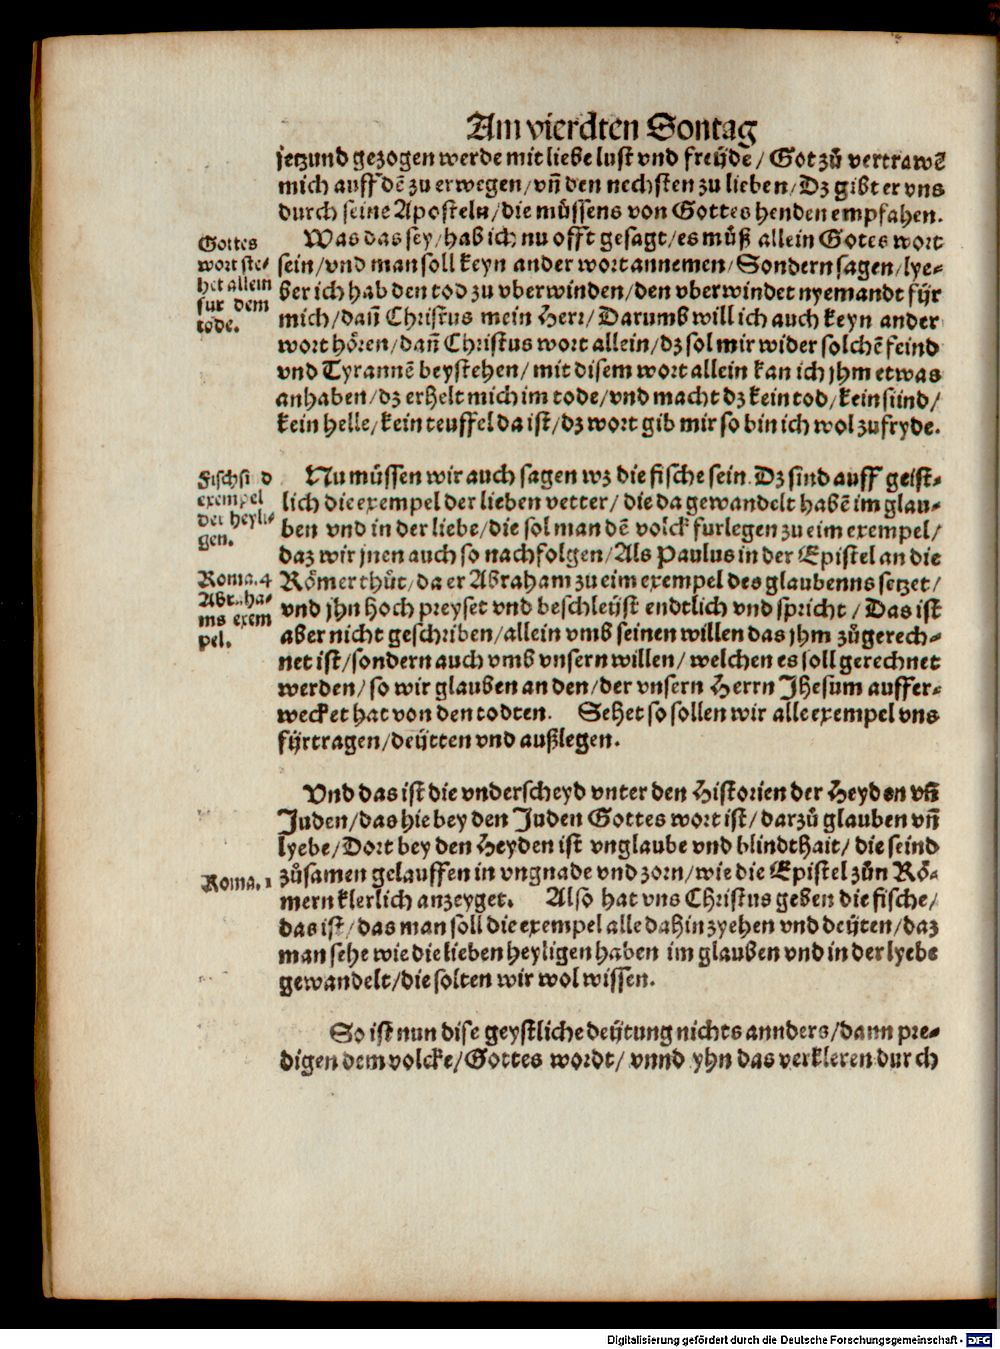 Am vierdten Sontag
jetzund gezogen werde mit liebe lust vnd freỹde / Got zů vertrawē
mich auff dē zu erwegen / vñ den nechsten zu lieben / Dz gibt er vns
durch seine Aposteln / die müssens von Gottes henden empfahen.
Was das sey / hab ich nu offt gesagt / es můß allein Gotes wort
sein / vnd man soll keyn ander wort annemen / Sondern sagen / lye⸗
ber ich hab den tod zu vberwinden / den vberwindet nyemandt fÿr
mich / dañ Christus mein Herr / Darumb will ich auch keyn ander
wort hören / dañ Christus wort allein / dz sol mir wider solchē feind
vnd Tyrannē beystehen / mit disem wort allein kan ich jhm etwas
anhaben / dz erhelt mich im tode / vnd macht dz kein tod / kein sünd /
kein helle / kein teuffel da ist / dz wort gib mir so bin ich wol zufryde.
Gottes
wort ste⸗
het allein
fur dem
tode.
Nu müssen wir auch sagen wz die fische sein. Dz sind auff geist⸗
lich die exempel der lieben vetter / die da gewandelt habē im glau⸗
ben vnd in der liebe / die sol man dē volck furlegen zu eim exempel /
daz wir jnen auch so nachfolgen / Als Paulus in der Epistel an die
Römer thůt / da er Abraham zu eim exempel des glaubenns setzet /
vnd jhn hoch preyset vnd beschleÿst endtlich vnd spricht / Das ist
aber nicht geschriben / allein vmb seinen willen das jhm zůgerech⸗
net ist / sondern auch vmb vnsern willen / welchen es soll gerechnet
werden / so wir glauben an den / der vnsern Herrn Jhesum auffer⸗
wecket hat von den todten. Sehet so sollen wir alle exempel vns
fÿrtragen / deÿtten vnd außlegen.
Fischsi d
exempel
der heyli⸗
gen.
Roma. 4
Abraha⸗
ms exem
pel.
Vnd das ist die vnderscheyd vnter den Historien der Heyden vñ
Juden / das hie bey den Juden Gottes wort ist / darzů glauben vñ
lyebe / Dort bey den Heyden ist vnglaube vnd blindthait / die seind
zůsamen gelauffen in vngnade vnd zorn / wie die Epistel zůn Rö⸗
mern klerlich anzeyget. Also hat vns Christus geben die fische /
das ist / das man soll die exempel alle dahin zyehen vnd deÿten / daz
man sehe wie die lieben heyligen haben im glauben vnd in der lyebe
gewandelt / die solten wir wol wissen.
Roma. 1
So ist nun dise geystliche deÿtung nichts annders / dann pre⸗
digen dem volcke / Gottes wordt / vnnd yhn das verkleren durch
Digitalisierung gefördert durch die Deutsche Forschungsgemeinschaft - DFG